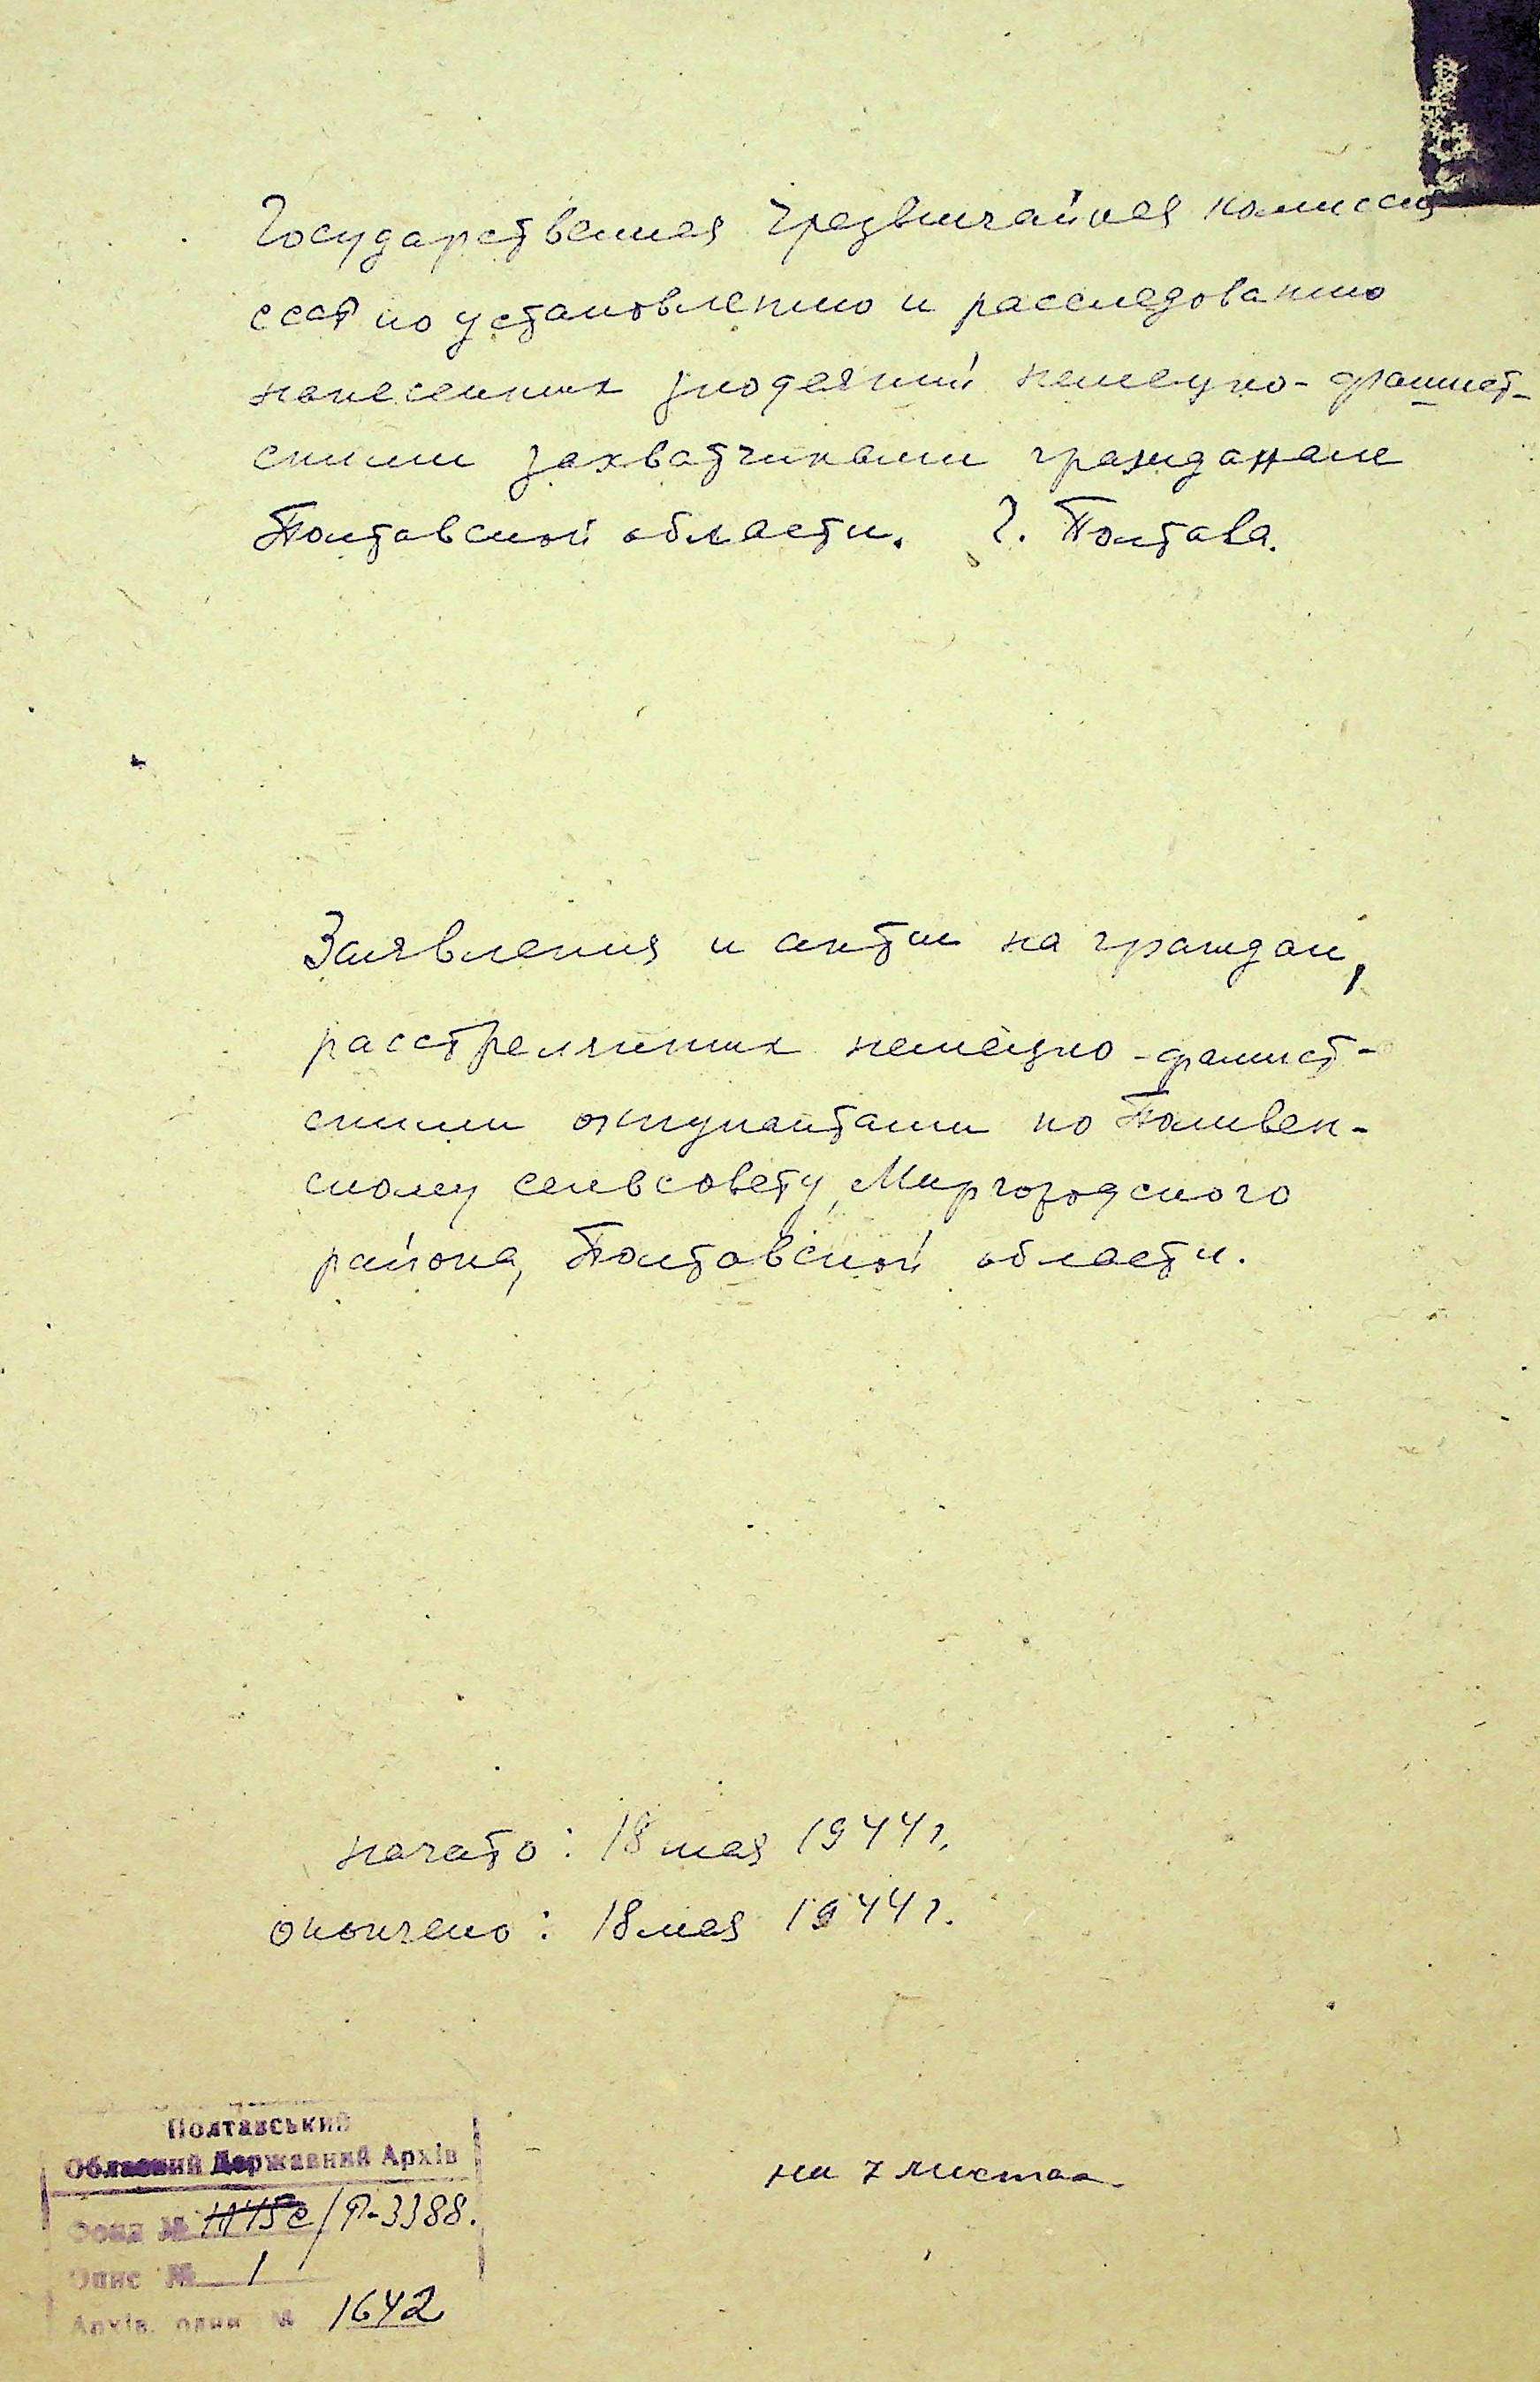 Государственная Чрезвычайная комиссия
СССР по установлению и расследованию
нанесенных злодеяний немецко-фашист-
скими захватчиками гражданам
Полтавской области. г. Полтава.
Заявления и акты на граждан,
расстрелянных немецко-фашист-
скими оккупантами по
скому сельсовету, Миргородского
района, Полтавской области.
начато: 18 мая 1944 г.
окончено: 18 мая 1944 г.
на 7 листах
Полтавський
Обласний Державний Архів
Фонд № /Р-3388.
Опис № 1
Архів. один. № 1642